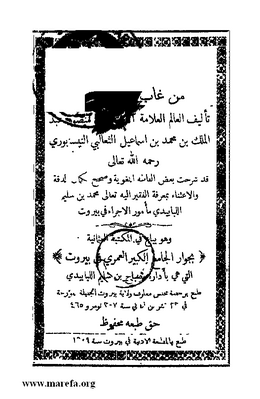 من غاب
تأليف العالم العلامة
الملك بن محمد بن اسماعيل الثعالبي النيسابوري
رحمه الله تعالى
قد شرحت بعض الفاظه اللغوية وصحح بكمال الدقة
والاعتناء بمعرفة الفقير اليه تعالى محمد بن سليم
اللبابيدي مأمور الاجراء في بيروت
وهو يباع في المكتبة العثمانية
بجوار الجامع الكبير العمري في بيروت
التي هي بادارة مصباح بن سليم اللبابيدي
طبع برخصة مجلس معارف ولاية بيروت الجليلة مؤرخة
في ٢٣ تشرين سنة ٣٠٧ نومرو ٤٦٥
حق طبعه محفوظ
طبع بالمطبعة الادبية في بيروت سنة ١٣٠٩
www.marefa.org